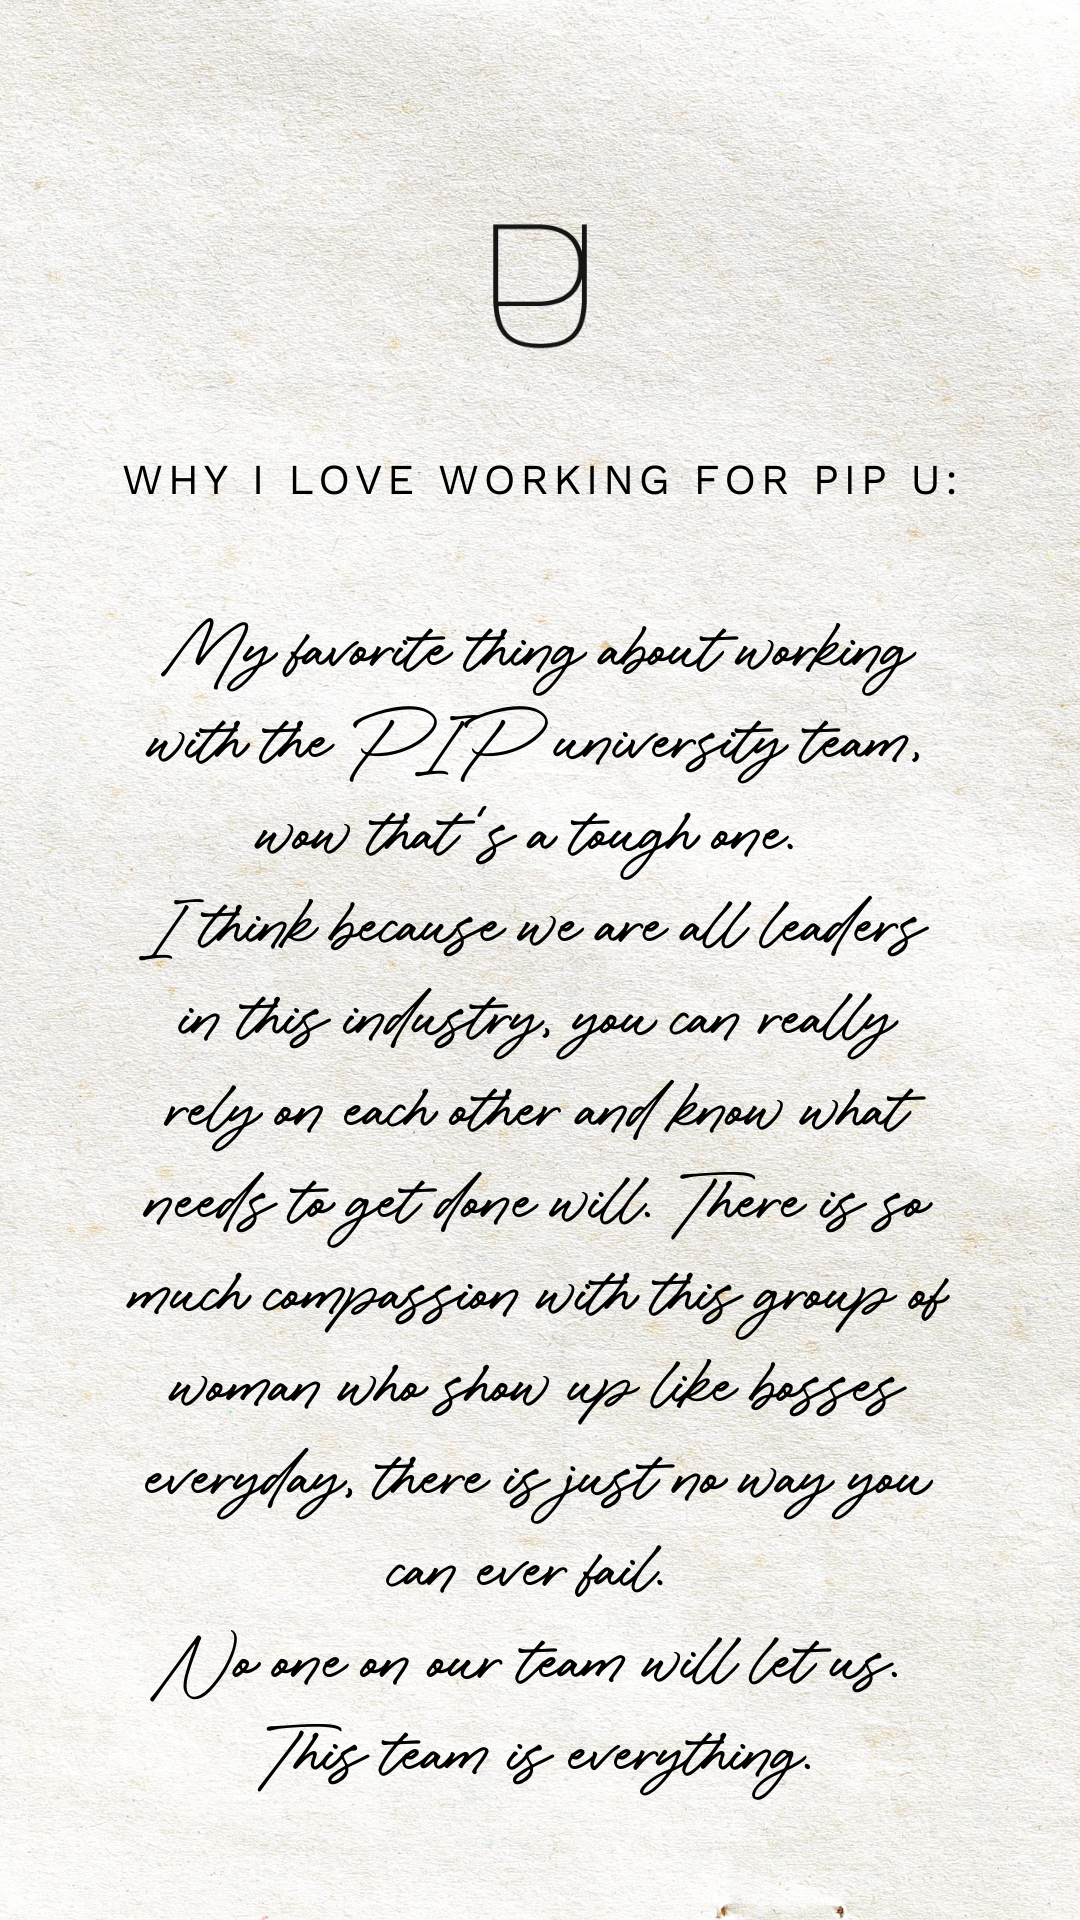 WHY I LOVE WORKING FOR PIP U:
My favorite thing about working
with the PIP university team,
wow that's a tough one.
I think because we are all leaders
in this industry, you can really
rely on each other and know what
needs to get done will. There is so
much compassion with this group of
woman who show up like bosses
everyday, there is just no way you
can ever fail.
No one on our team will let us.
This team is everything.